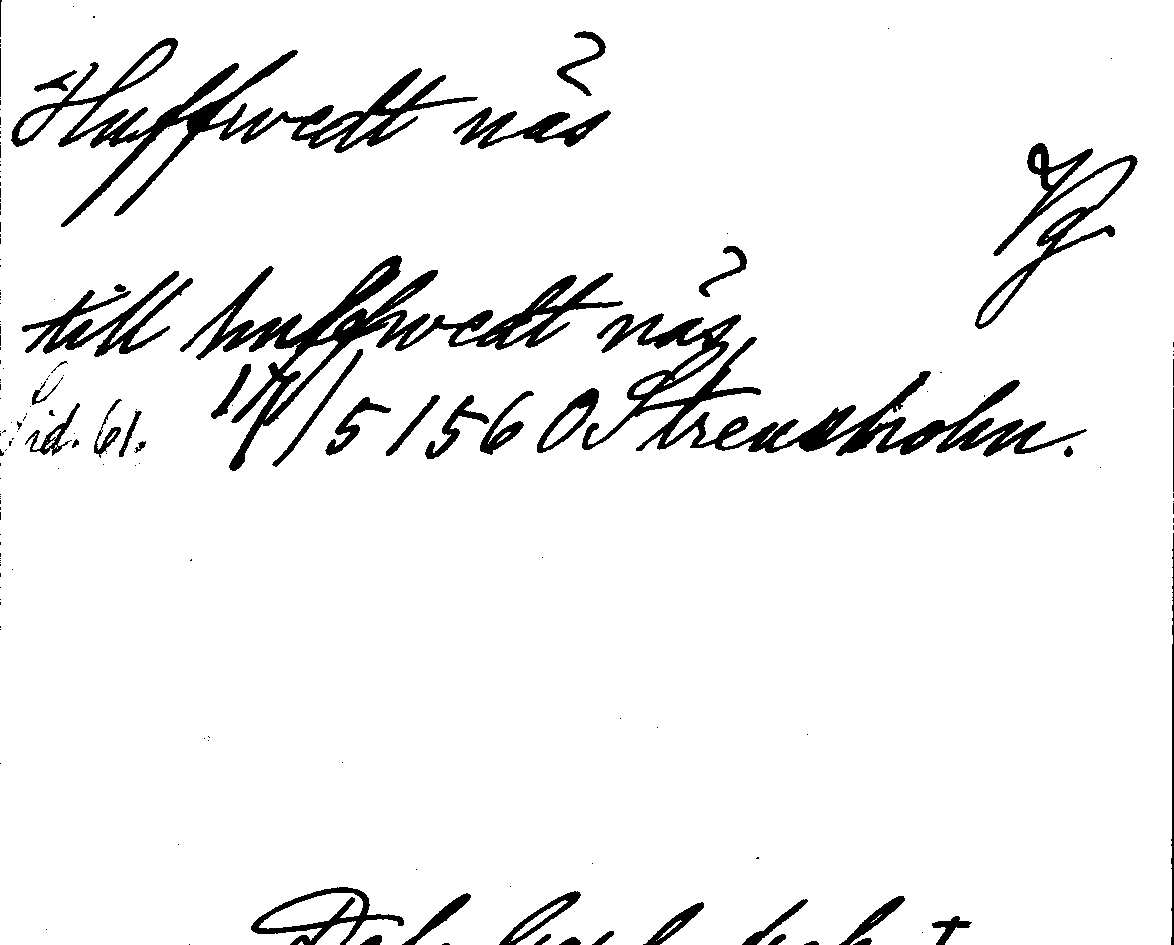 Huffwedt näs
Vg.
till huffhwedt näs,
Sid. 61. 17/5 1560 Strensholm.